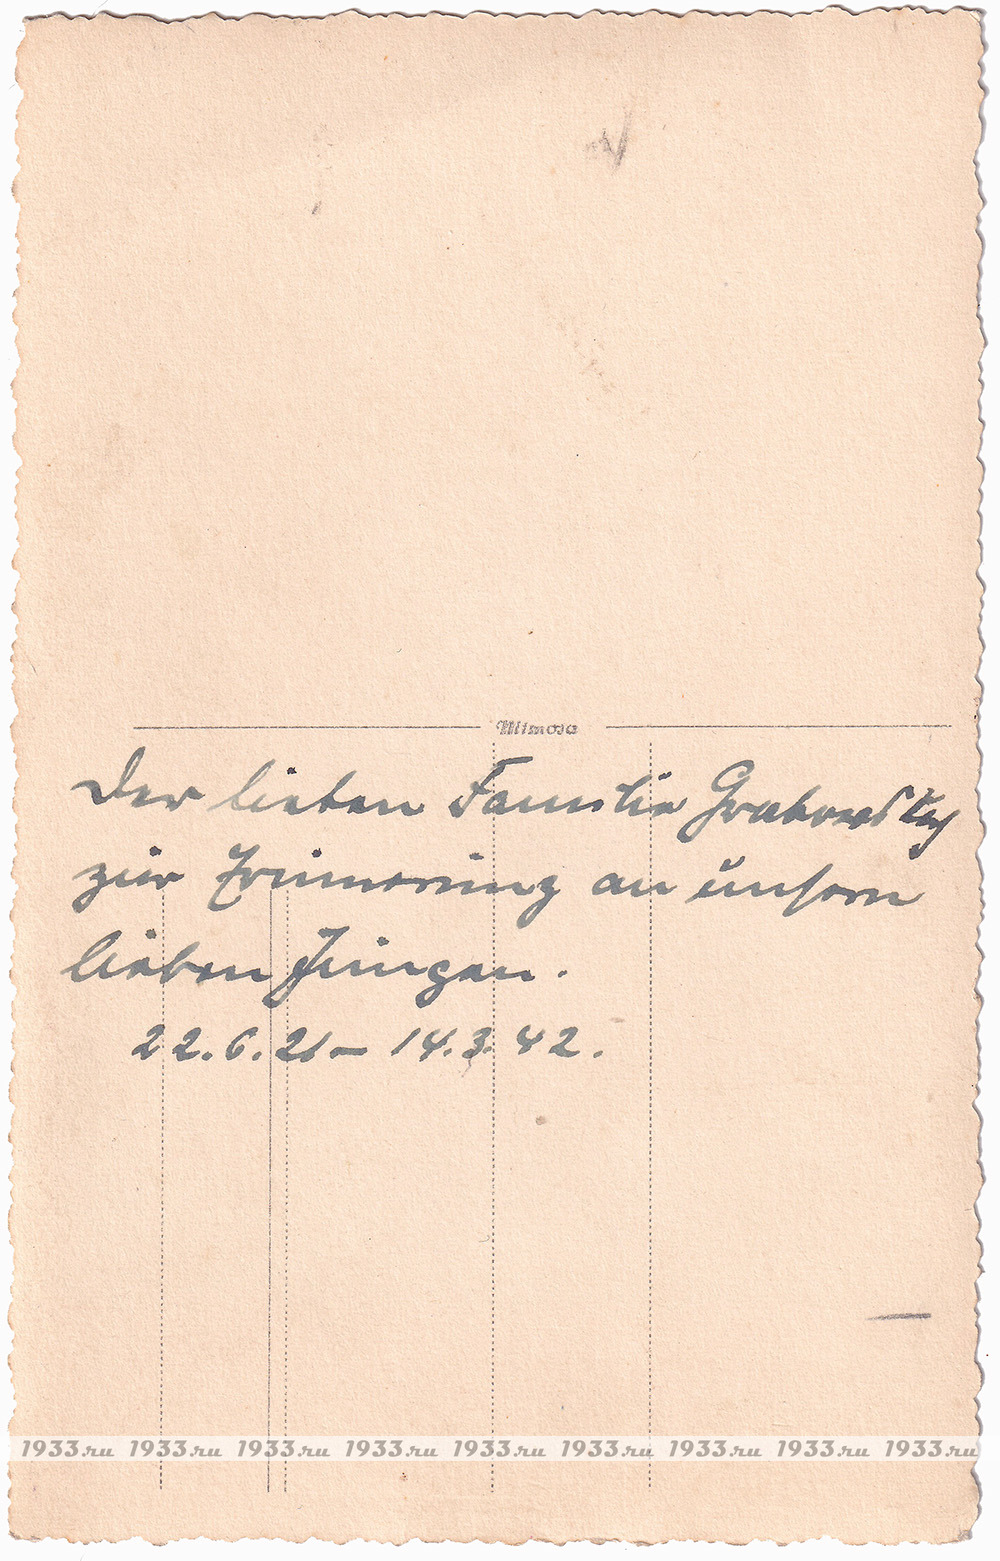 Mimosa
Der lieben Familie Grabowsky
zur Erinnerung an unsern
lieben Jungen.
22.6.21 – 14.3.42.
1933.ru 1933.ru 1933.ru 1933.ru 1933.ru 1933.ru 1933.ru 1933.ru 1933.ru